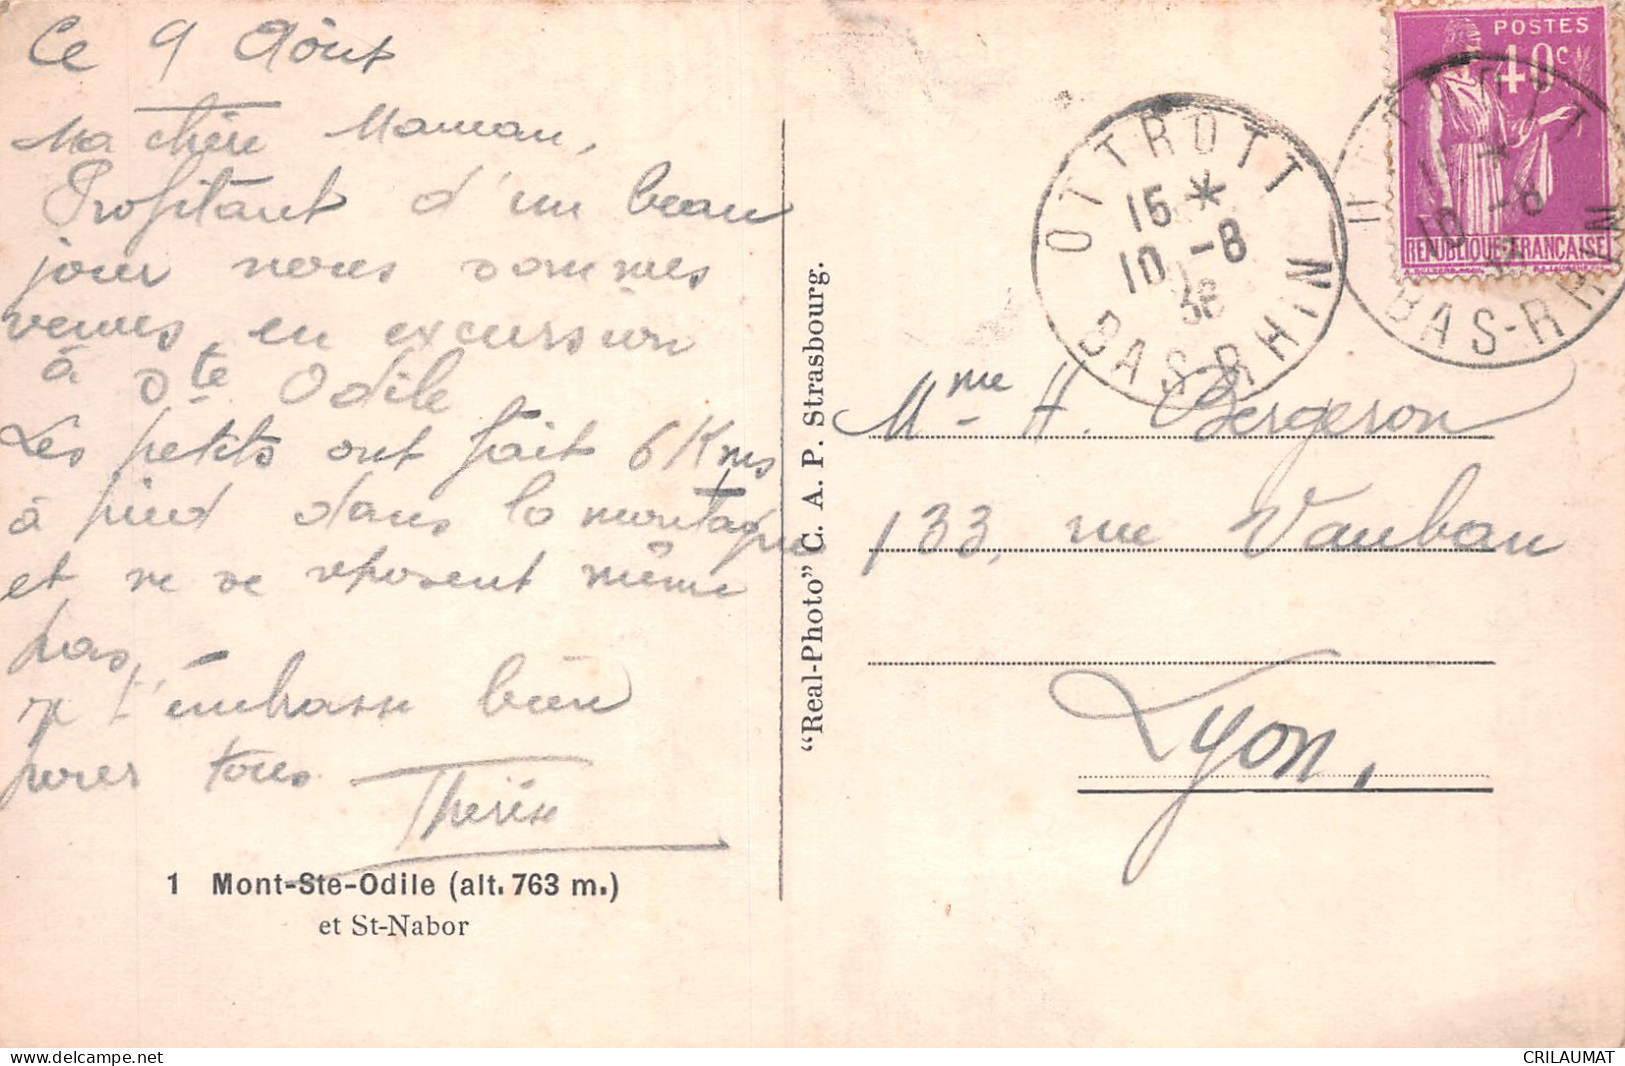 Ce 9 Août
Ma chère Maman,
Profitant d'un beau
jour nous sommes
venus en excursion
à Ste Odile
Les petits ont fait 6 Kms
à pied dans la montagne
et ne se reposent même
pas,
Je t'embrasse bien
pour tous
Thérèse
1 Mont-Ste-Odile (alt. 763 m.)
et St-Nabor
"Real-Photo" C. A. P. Strasbourg.
POSTES
40c
REPUBLIQUE FRANCAISE
OTTROTT
15 *
10 -8
36
BAS-RHIN
10 -8
BAS-RHIN
Mme H. Bergeron
133, rue Vauban
Lyon,
delcampe.net
CRILAUMAT